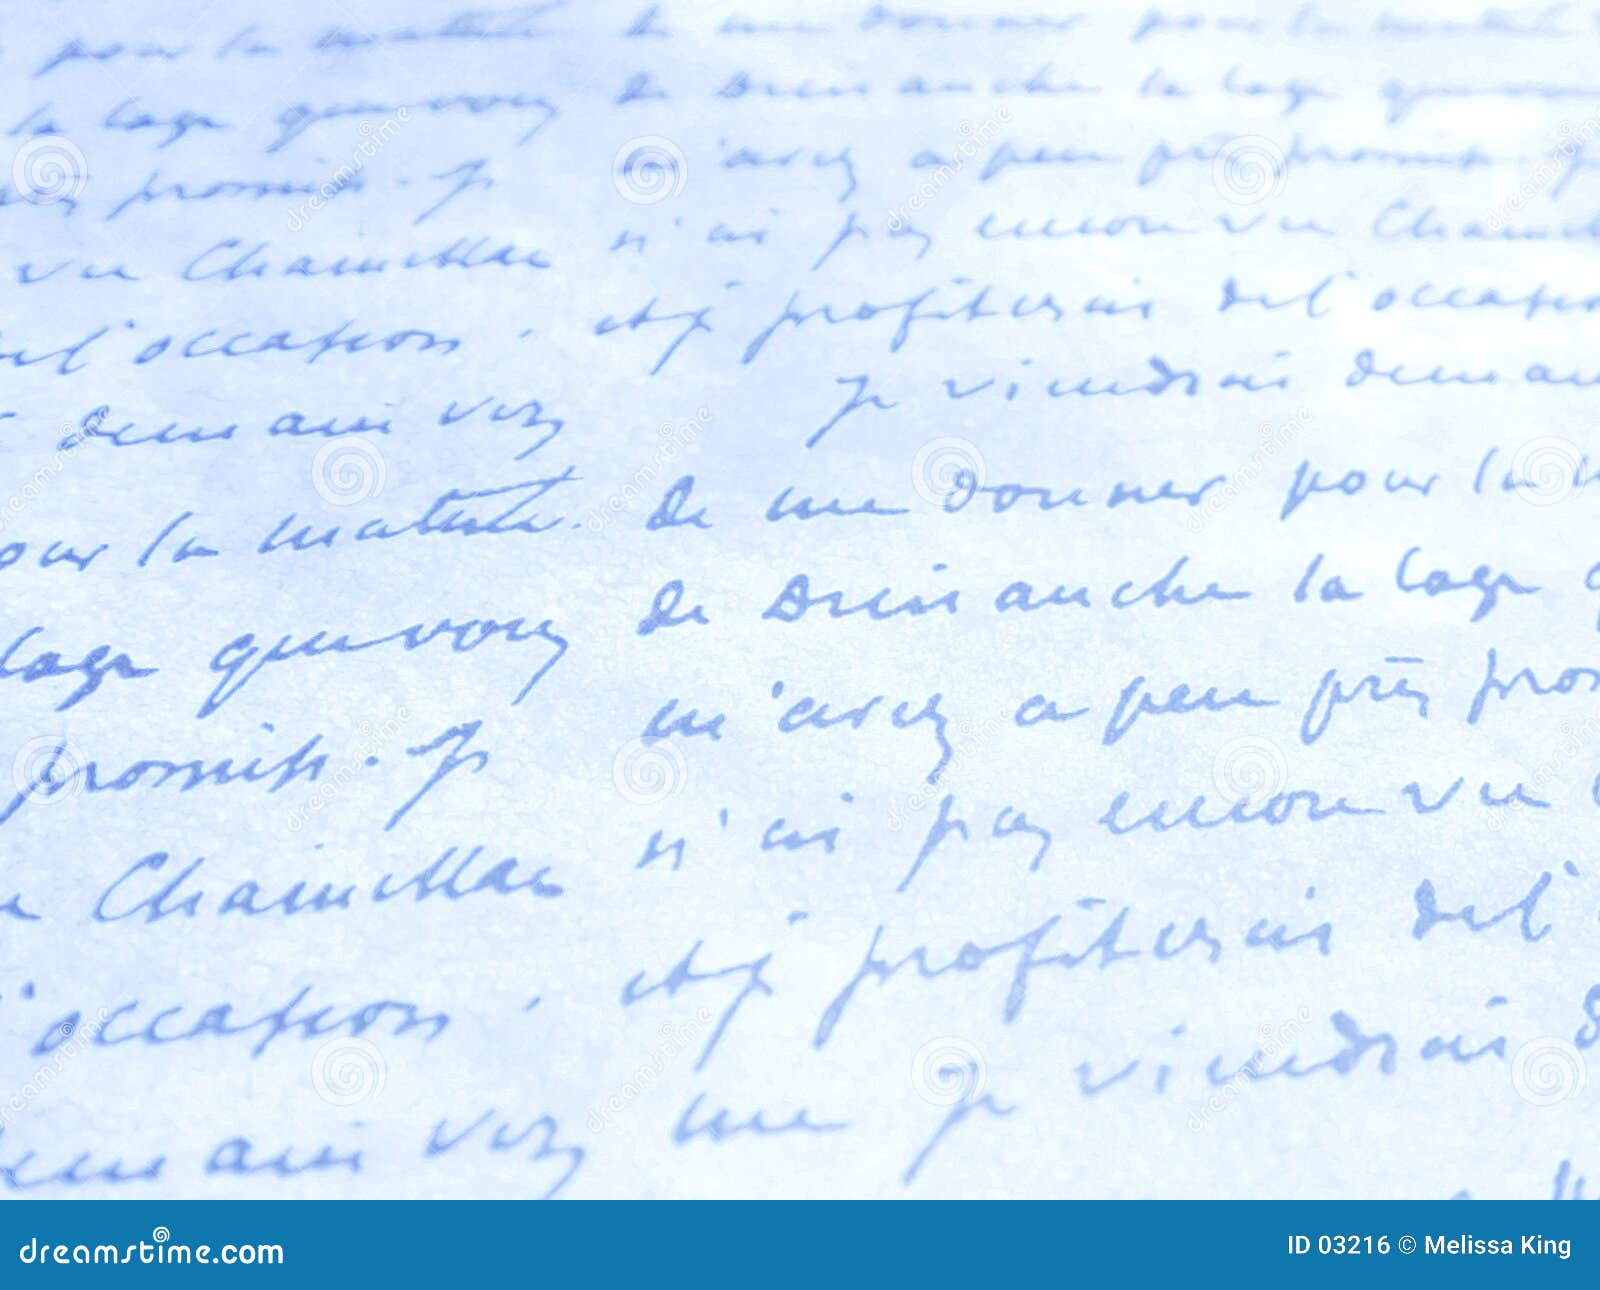 pour la matinée de me donner pour la matinée
la loge que vous de Dimanche la loge que vous
près promise. Je m'avez a peu près promise. Je
vu Chamillac n'ai pas encore vu Chamill
del'occasion. et je profiterais del'occasion
demain vez je viendrais demain
our la matinée. de me donner pour la m
loge que vous de Dimanche la loge q
promise. Je m'avez a peu près prom
Chamillac n'ai pas encore vu C
l'occasion. et je profiterais del'
demain vez me je viendrais d
dreamstime.com ID 03216 © Melissa King